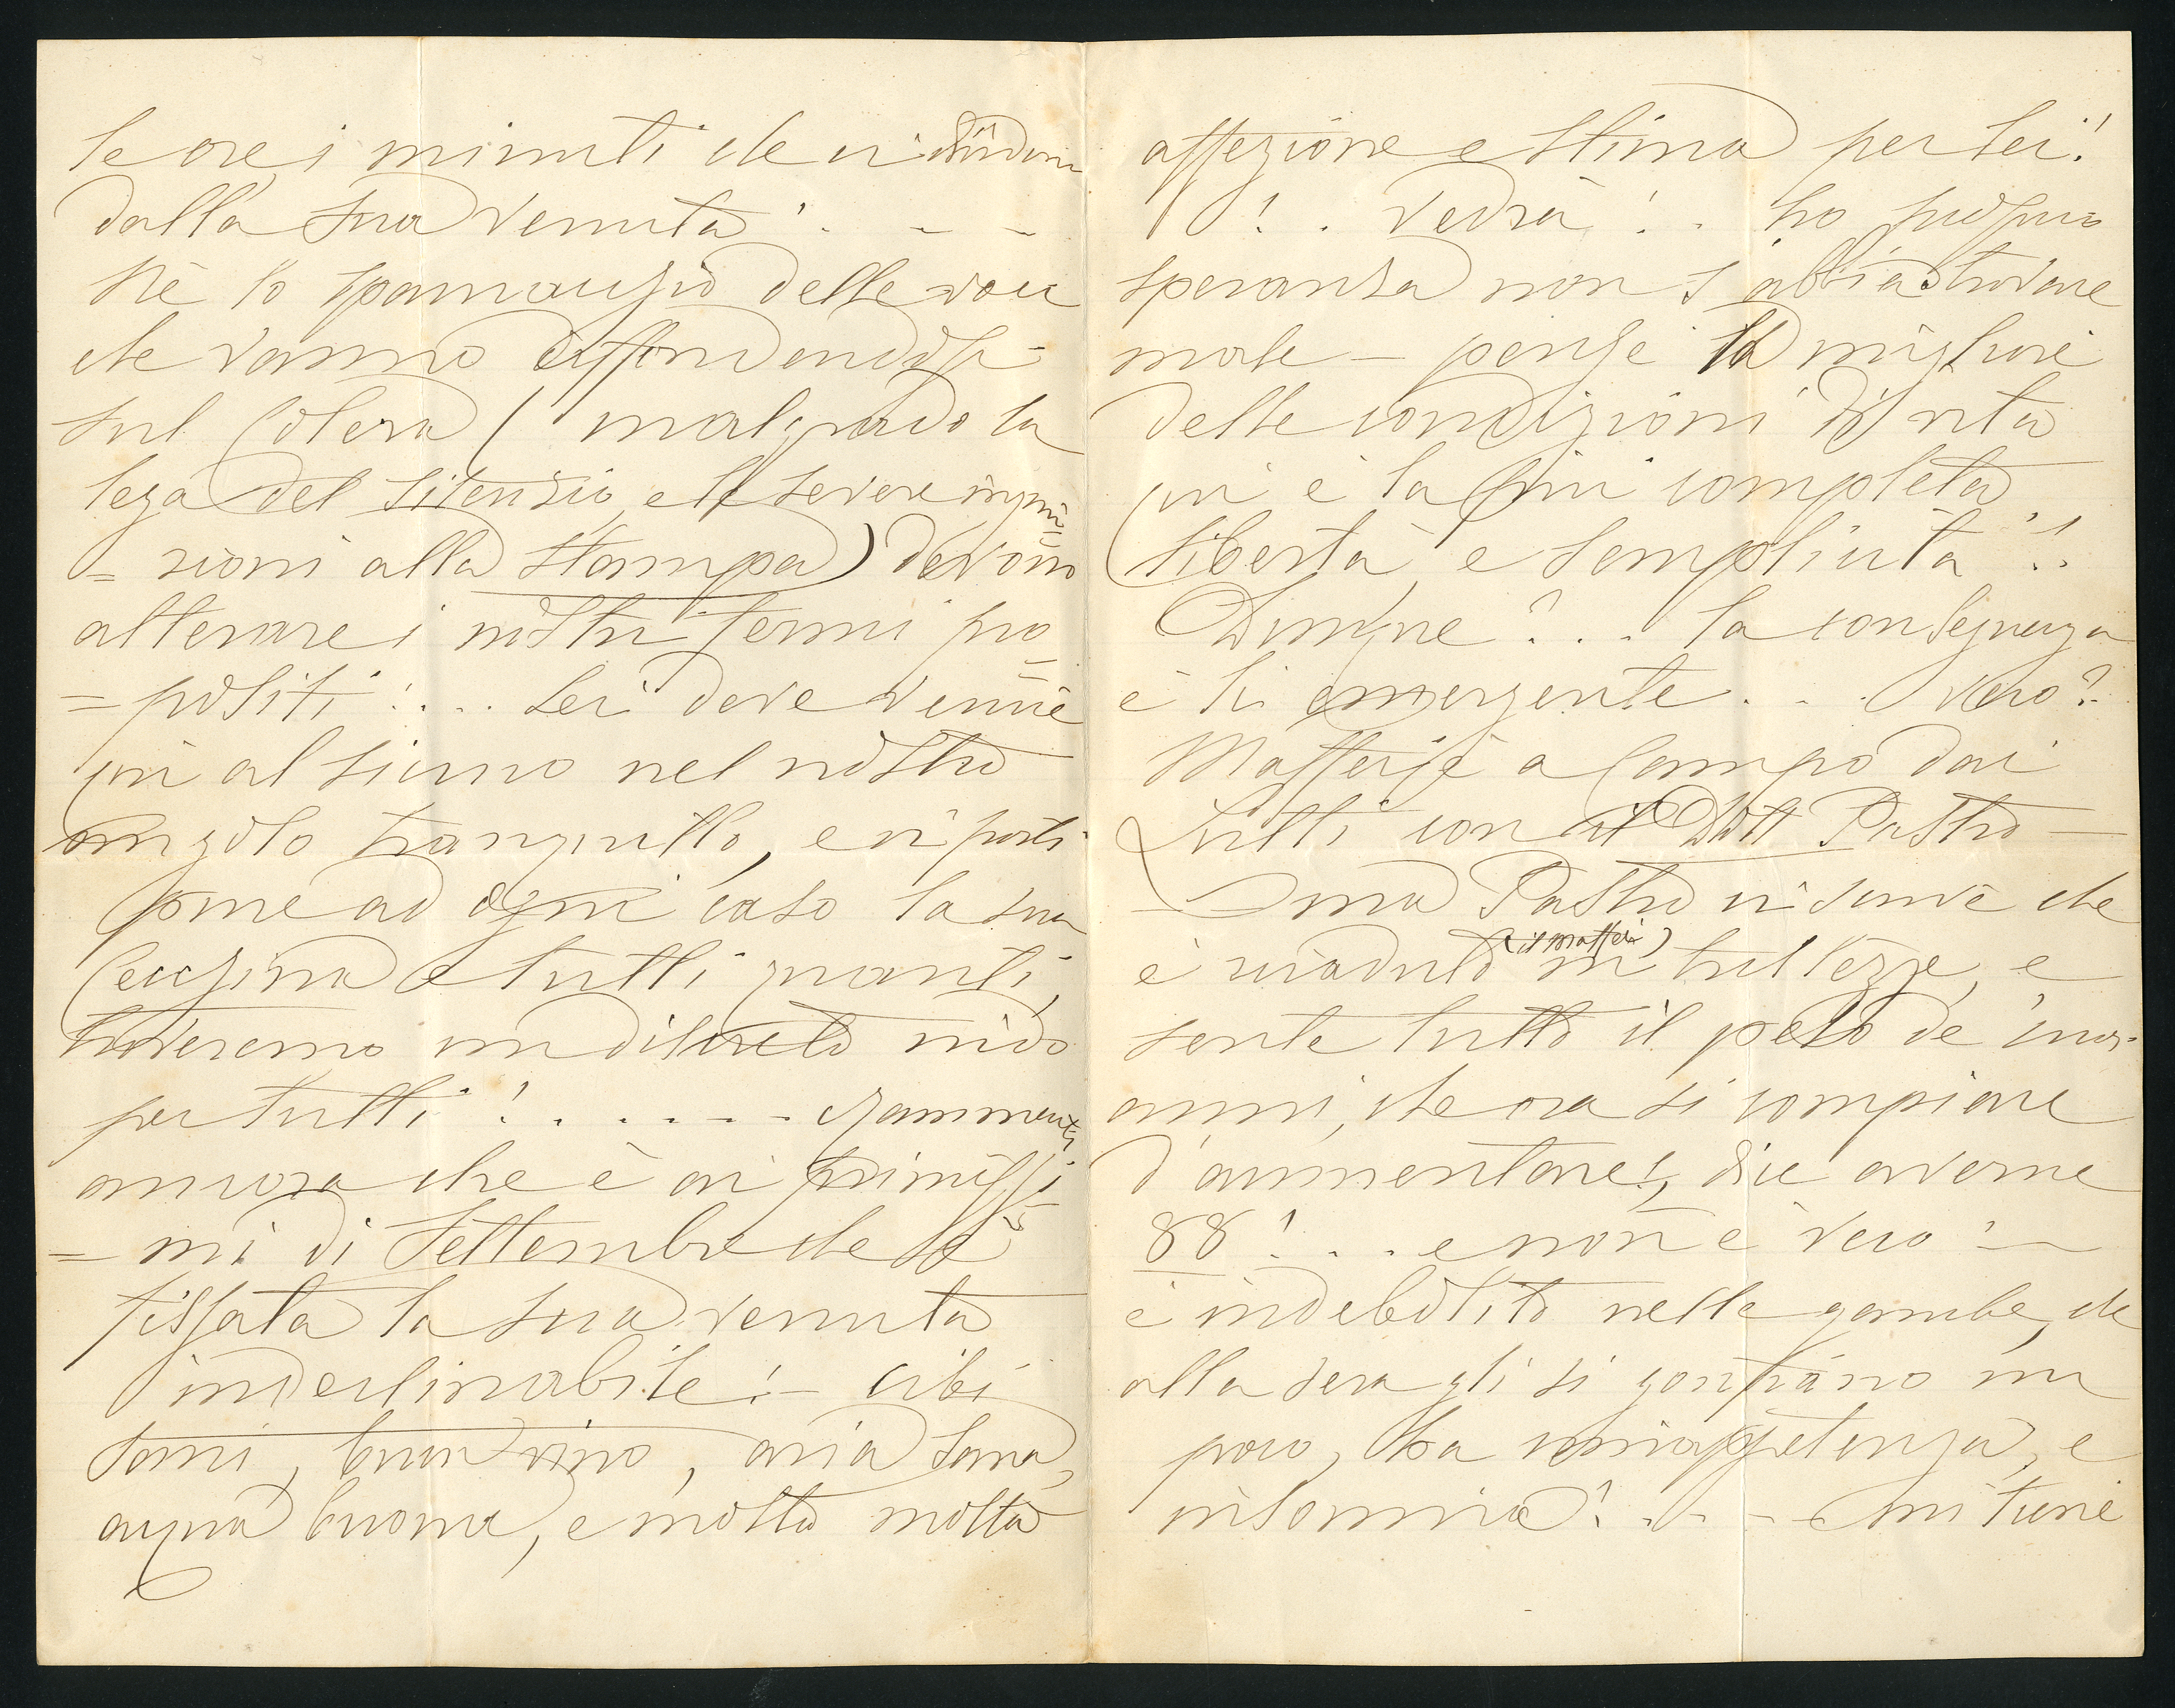 le ore, i minuti che ci dividono
dalla sua venuta! . - -
Nè lo spauracchio delle voci
che vanno diffondendosi
sul Colera (malgrado la
lega del silenzio, e le severe ingiun
= zioni alla stampa) devono
alterare i nostri fermi pro
= positi! ... Lei deve venire
qui al sicuro nel nostro
angolo tranquillo, e vi porti
pure ad ogni caso la sua
Cecchina e tutti quanti,
troveremo un discreto nido
per tutti! . . . . - - - rammenti
ancora che è ai primissi
= mi di Settembre che s'è
fissata la sua venuta
indeclinabile! - cibi
sani, buon vino, aria sana,
acqua buona, e molta molta
affezione e stima per Lei!
! . . vedrà! . . ho proprio
speranza non s'abbia a trovare
male - poichè la migliore
delle condizioni di vita
qui è la più completa
libertà, e semplicità!!
Dunque? . . . la conseguenza
è lì emergente . . . vero?
Maffei è a Campo dai
Lutti con il Dott Pastro -
- ma Pastro vi scrive che
è ricaduto (il Maffei) in tristezze, e
sente tutto il peso de' suoi
anni, che ora si compiace
d'aumentare!, dice averne
88! . . . e non è vero! -
è indebolito nelle gambe, che
alla sera gli si gonfiano un
poco, ha inappetenza, e
insonnia! . . - - mi tiene